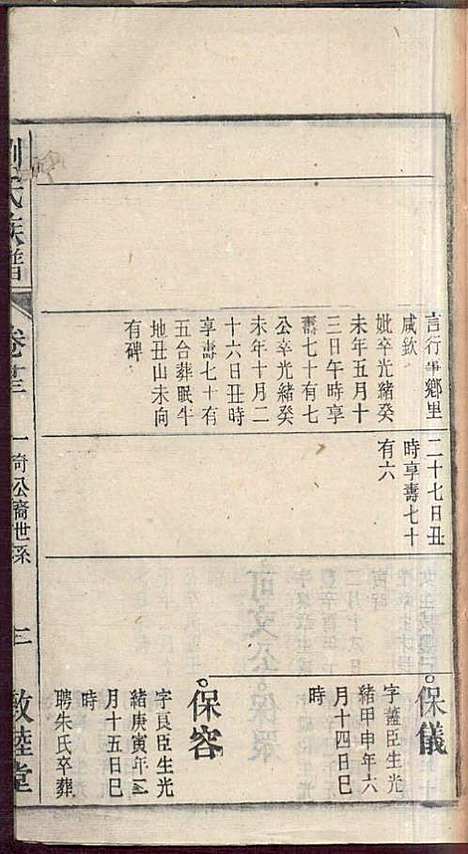 言行事鄉里
咸欽
妣卒光緒癸
未年五月十
三日午時享
壽七十有七
公卒光緒癸
未年十月二
十六日丑時
享壽七十有
五合葬眠牛
地丑山未向
有碑
二十七日丑
時享壽七十
有六
保儀
字藎臣生光
緒甲申年六
月十四日巳
時
保容
字良臣生光
緒庚寅年二
月十五日巳
時
聘朱氏卒葬
劉氏族譜
卷十三
一奇公裔世系
三
敦睦堂